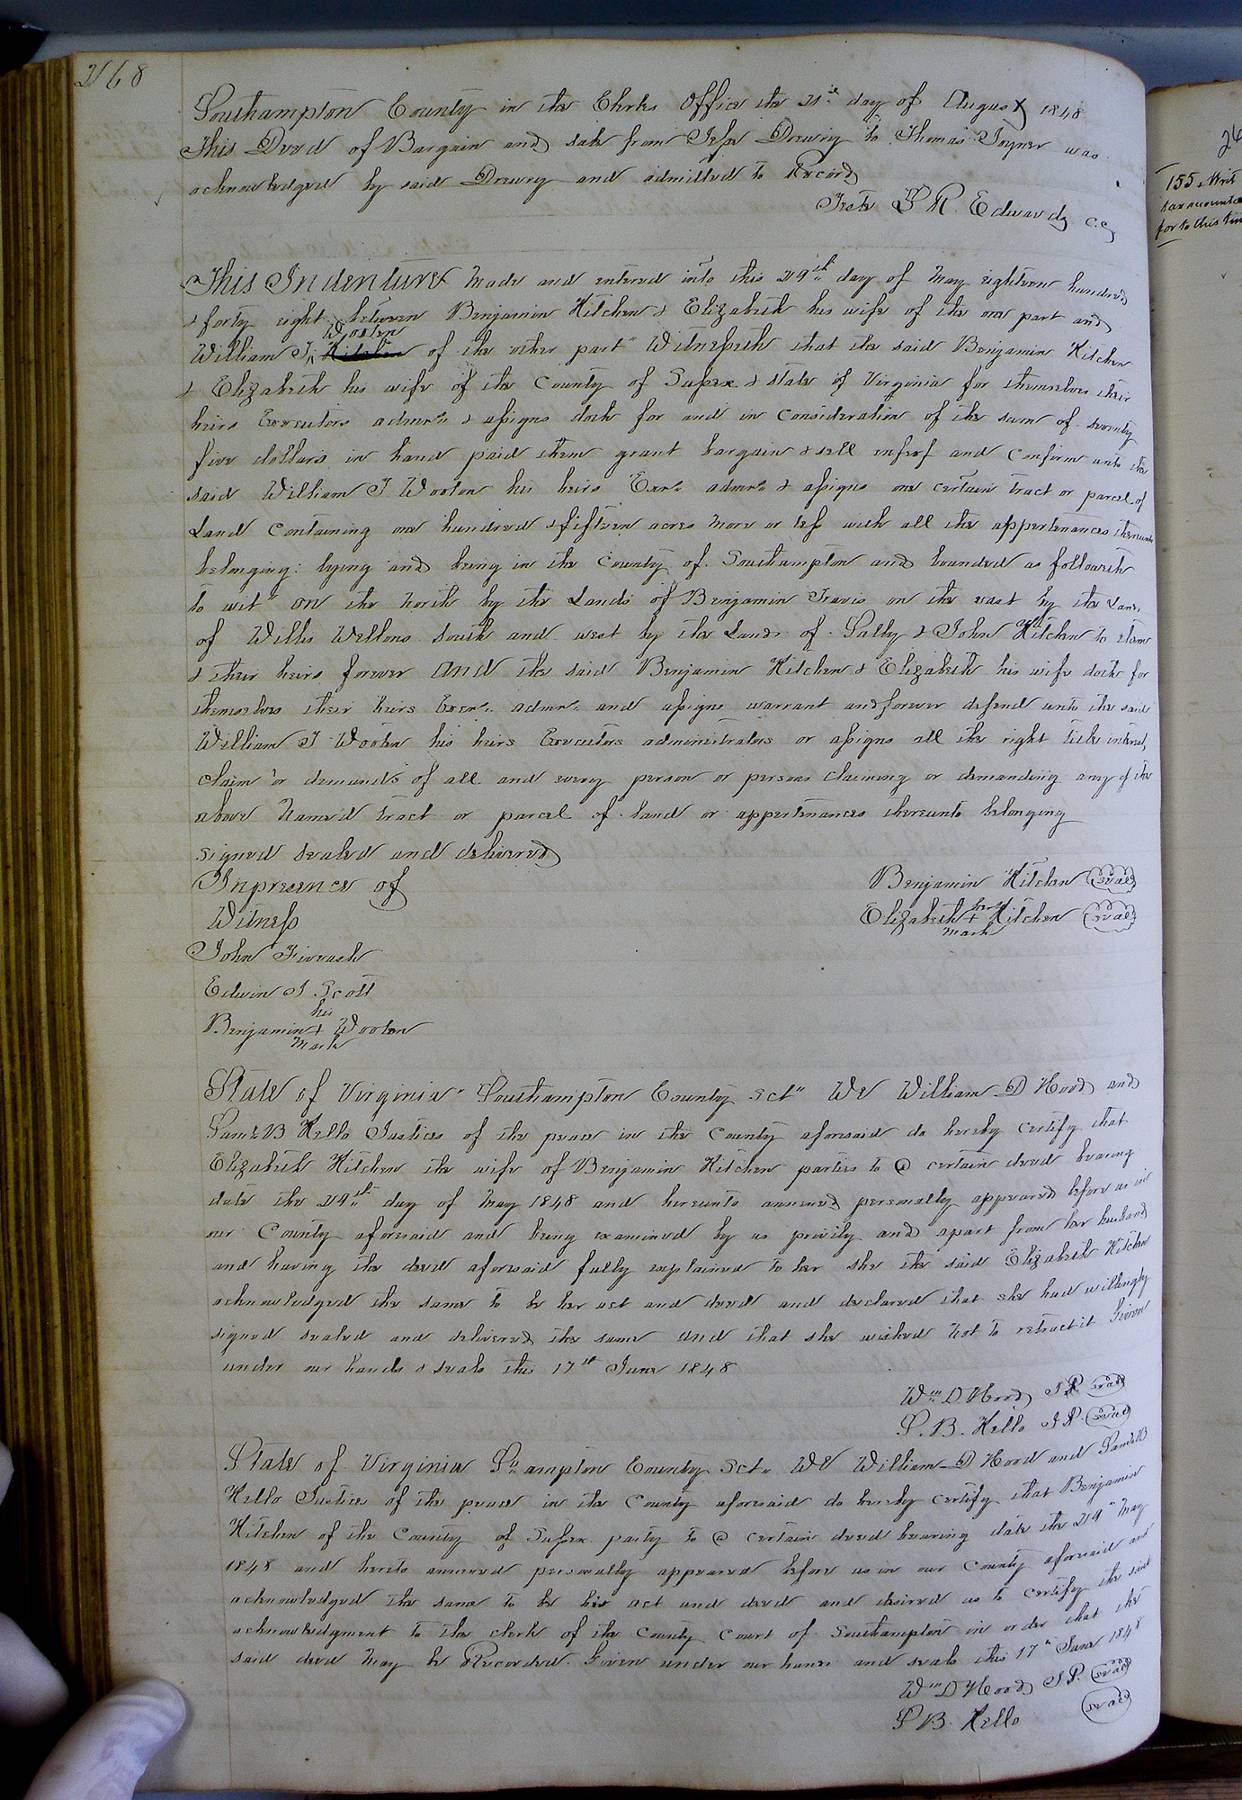 268
Southampton County in the Clerks Office the 21st day of August 1848
This Deed of Bargain and sale from Jesse Drewry to Thomas Joyner was
acknowledged by said Drewry and admitted to Record
Teste L R. Edwards c.c
This Indenture Made and entered into this 29th day of May eighteen hundred
& forty eight between Benjamin Kitchen & Elizabeth his wife of the one part and
Wooten
William J Kitchen of the other part" Witnesseth that the said Benjamin Kitchen
& Elizabeth his wife of the County of Sussex & state of Virginia for themselves their
heirs Executors admrs & assigns doth for and in Consideration of the sum of seventy
five dollars in hand paid them grant bargain & sell enfeof and Confirm unto the
said William J Wooten his heirs Exrs admrs & assigns one certain tract or parcel of
Land Containing one hundred & fifteen acres more or less with all the appertenances thereunto
belonging: lying and being in the County of Southampton and bounded as followeth
to wit" on the North by the Lands of Benjamin Travis on the east by the Land
of Willis Wellons South and west by the Land of Sally & John Kitchen to them
& their heirs forever And the said Benjamin Kitchen & Elizabeth his wife doth for
themselves their heirs Exrs. admrs. and assigns warrant and forever defend unto the said
William J Wooten his heirs Executors administrators or assigns all the right title interest,
claim or demands of all and every person or persons claiming or demanding any of the
above Named tract or parcel of land or appertenances thereunto belonging
signed sealed and delivered
In presence of
Benjamin Kitchen (seal)
Witness
her
Elizabeth + Kitchen (seal)
mark
John
Edwin J Scott
his
Benjamin + Wooten
Mark
State of Virginia" Southampton County Sct" We William D Hood and
Saml B Kello Justices of the peace in the County aforesaid do hereby certify that
Elizabeth Kitchen the wife of Benjamin Kitchen parties to a certain deed bearing
date the 29th day of May 1848 and hereunto annexed personally appeared before us in
our County aforesaid and being examined by us privily and apart from her husband
and having the deed aforesaid fully explained to her she the said Elizabeth Kitchen
acknowledged the same to be her act and deed and declared that she had willingly
signed sealed and delivered the same and that she wished Not to retract it Given
under our hands & seals this 17th June 1848
Wm D Hood J.P. (seal)
S. B. Kello J.P. (seal)
State of Virginia So.ampton County Sct. We William D Hood and Saml B
Kello Justices of the peace in the County aforesaid do hereby certify that Benjamin
Kitchen of the County of Sussex party to a certain deed bearing date the 29th May
1848 and hereto annexed personally appeared before us in our County aforesaid and
acknowledged the same to be his act and deed and desired us to certify the said
acknowledgment to the clerk of the County Court of Southampton in order that the
said deed may be Recorded. Given under our hands and seals this 17th June 1848
Wm D Hood J.P. (seal)
S B Kello (seal)
26
155
for to this time